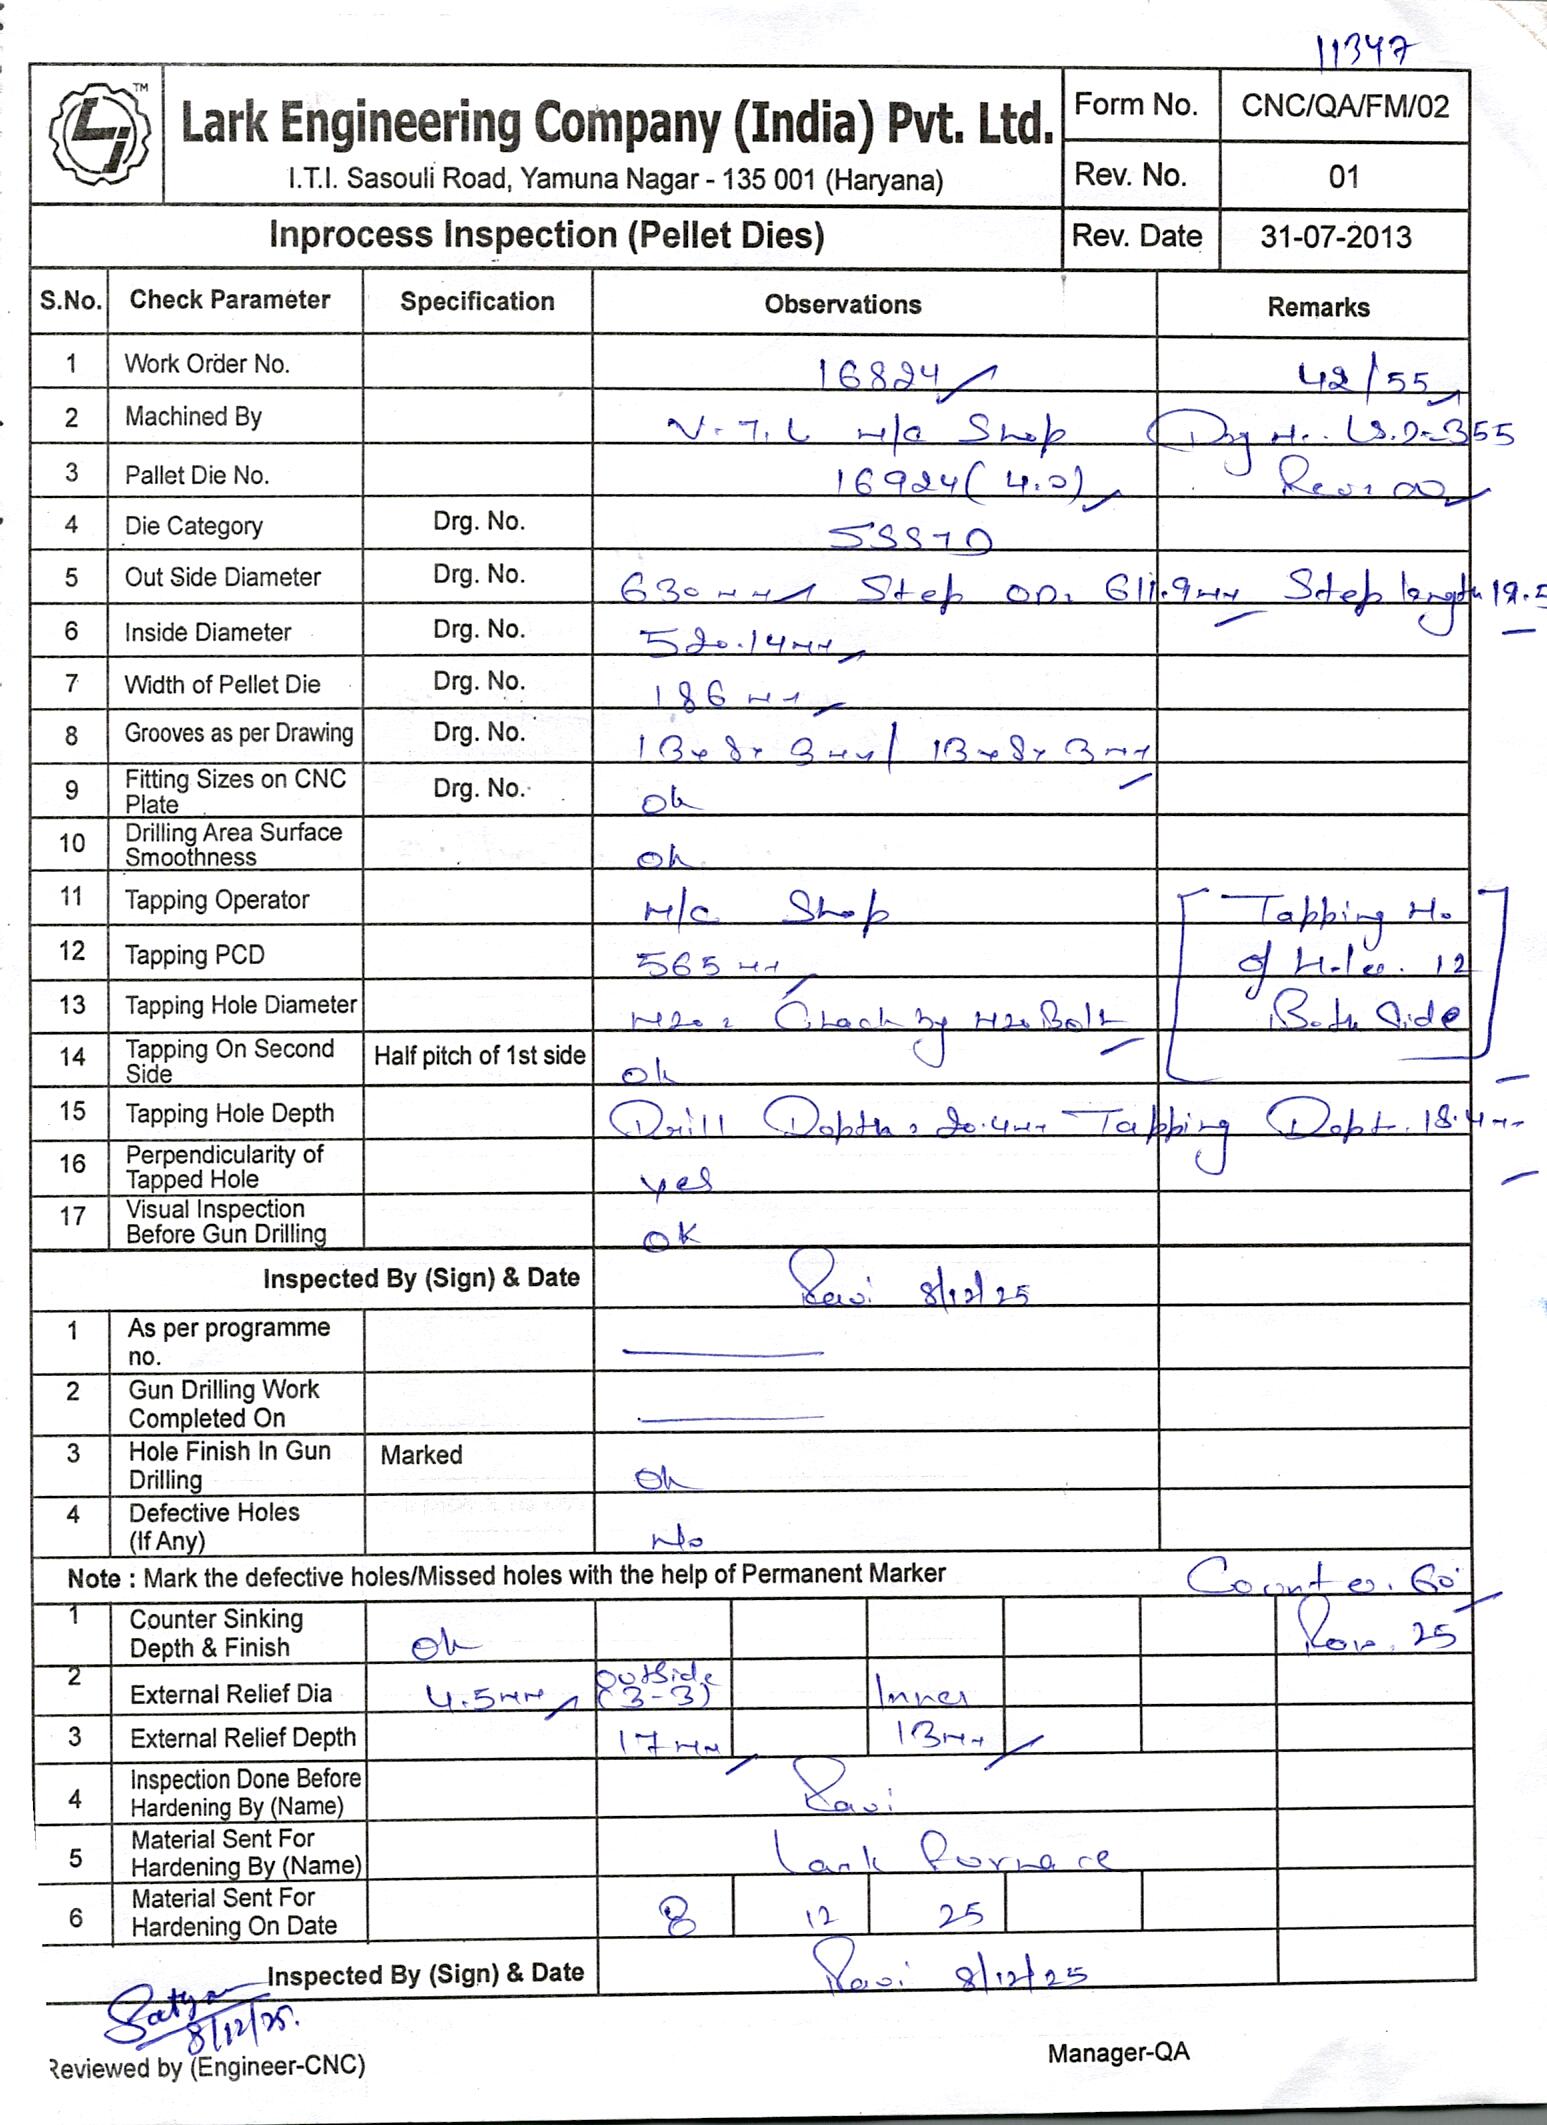 11347
Lark Engineering Company (India) Pvt. Ltd.
I.T.I. Sasouli Road, Yamuna Nagar - 135 001 (Haryana)
Form No. CNC/QA/FM/02
Rev. No. 01
Inprocess Inspection (Pellet Dies) Rev. Date 31-07-2013
S.No. Check Parameter Specification Observations Remarks
1 Work Order No. 16824 42/55
2 Machined By V.T.L M/C Shop Drg No. 355
3 Pallet Die No. 16924 (4.0) Rev: 00
4 Die Category Drg. No.
5 Out Side Diameter Drg. No. 630 mm Step OD. 611.9 mm Step length 19.5
6 Inside Diameter Drg. No. 520.14 mm
7 Width of Pellet Die Drg. No. 186 mm
8 Grooves as per Drawing Drg. No. 13x8x3 mm / 13x8x3 mm
9 Fitting Sizes on CNC Plate Drg. No. Ok
10 Drilling Area Surface Smoothness Ok
11 Tapping Operator M/C Shop Tapping No
12 Tapping PCD 565 mm of Holes. 12
13 Tapping Hole Diameter M20: Check by M20 Bolt Both Side
14 Tapping On Second Side Half pitch of 1st side Ok
15 Tapping Hole Depth Drill Depth: 20.4 mm Tapping Depth. 18.4 mm
16 Perpendicularity of Tapped Hole yes
17 Visual Inspection Before Gun Drilling OK
Inspected By (Sign) & Date Ravi 8/12/25
1 As per programme no.
2 Gun Drilling Work Completed On
3 Hole Finish In Gun Drilling Marked Ok
4 Defective Holes (If Any) No
Note : Mark the defective holes/Missed holes with the help of Permanent Marker Counter. 60°
1 Counter Sinking Depth & Finish Ok Row. 25
2 External Relief Dia 4.5 mm Outside (3-3) Inner
3 External Relief Depth 17 mm 13 mm
4 Inspection Done Before Hardening By (Name) Ravi
5 Material Sent For Hardening By (Name) Lark Furnace
6 Material Sent For Hardening On Date 8 12 25
Inspected By (Sign) & Date Ravi 8/12/25
Satyam
8/12/25.
Reviewed by (Engineer-CNC) Manager-QA